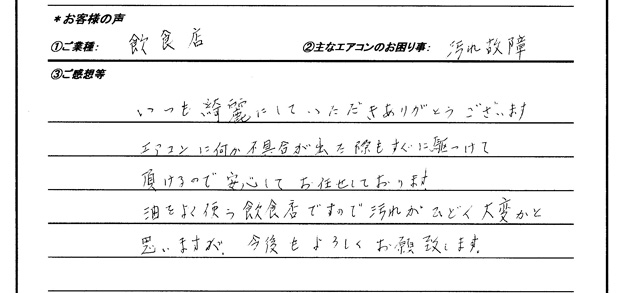 ＊お客様の声
①ご業種: 飲食店 ②主なエアコンのお困り事: 汚れ故障
③ご感想等
いつも綺麗にしていただきありがとうございます
エアコンに何か不具合が出た際もすぐに駆つけて
頂けるので安心してお任せしております
油をよく使う飲食店ですので汚れがひどく大変かと
思いますが、今後もよろしくお願致します。